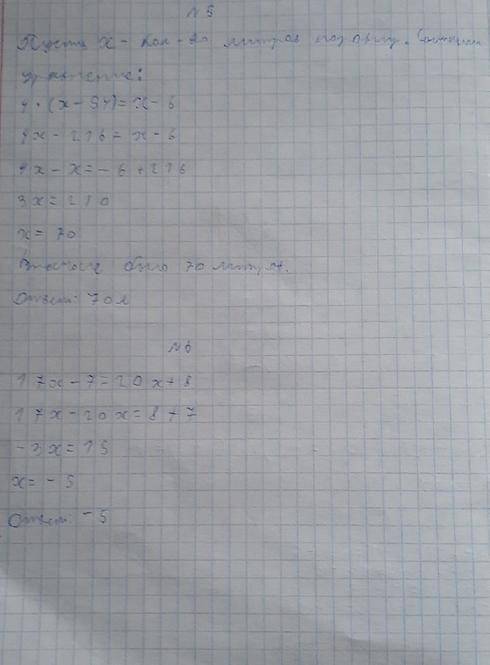 № 5
Пусть x - кол-во литров
уравнение:
4 · (x - 54) = x - 6
4x - 216 = x - 6
4x - x = - 6 + 216
3x = 210
x = 70
было 70 литров.
Ответ: 70 л
№ 6
17x - 7 = 20x + 8
17x - 20x = 8 + 7
- 3x = 15
x = - 5
Ответ: - 5